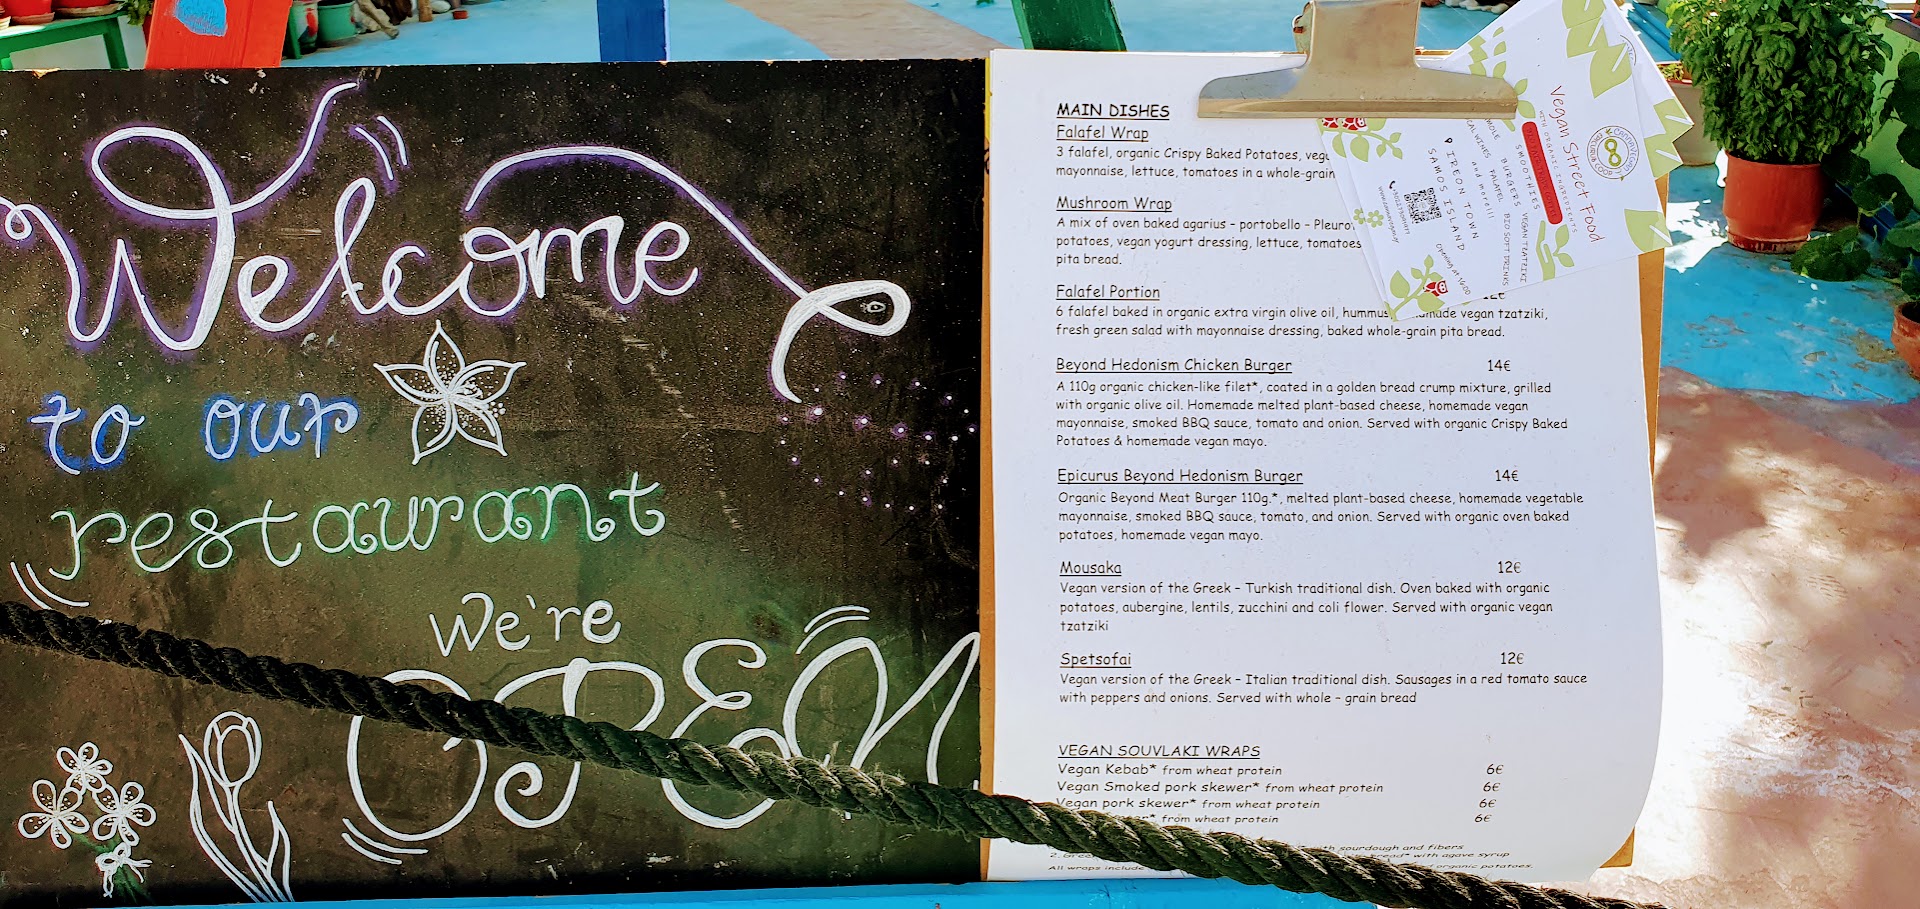 Welcome
to our
restaurant
We're
OPEN
MAIN DISHES
Falafel Wrap
3 falafel, organic Crispy Baked Potatoes,
mayonnaise, lettuce, tomatoes in a whole-grain
Mushroom Wrap
A mix of oven baked agarius - portobello -
potatoes, vegan yogurt dressing, lettuce, tomatoes
pita bread.
Falafel Portion
6 falafel baked in organic extra virgin olive oil, vegan tzatziki,
fresh green salad with mayonnaise dressing, baked whole-grain pita bread.
Beyond Hedonism Chicken Burger 14€
A 110g organic chicken-like filet*, coated in a golden bread crump mixture, grilled
with organic olive oil. Homemade melted plant-based cheese, homemade vegan
mayonnaise, smoked BBQ sauce, tomato and onion. Served with organic Crispy Baked
Potatoes & homemade vegan mayo.
Epicurus Beyond Hedonism Burger 14€
Organic Beyond Meat Burger 110g.*, melted plant-based cheese, homemade vegetable
mayonnaise, smoked BBQ sauce, tomato, and onion. Served with organic oven baked
potatoes, homemade vegan mayo.
Mousaka 12€
Vegan version of the Greek – Turkish traditional dish. Oven baked with organic
potatoes, aubergine, lentils, zucchini and coli flower. Served with organic vegan
tzatziki
Spetsofai 12€
Vegan version of the Greek – Italian traditional dish. Sausages in a red tomato sauce
with peppers and onions. Served with whole – grain bread
VEGAN SOUVLAKI WRAPS
Vegan Kebab* from wheat protein 6€
Vegan Smoked pork skewer* from wheat protein 6€
Vegan pork skewer* from wheat protein 6€
from wheat protein 6€
sourdough and fibers
with agave syrup
All wraps include organic potatoes.
Vegan Street Food
WITH ORGANIC INGREDIENTS
SMOOTHIES VEGAN TZATZIKI
BURGERS BIO SOFT DRINKS
FALAFEL
and more!!!
IREON TOWN
SAMOS ISLAND
Opening at 16:00